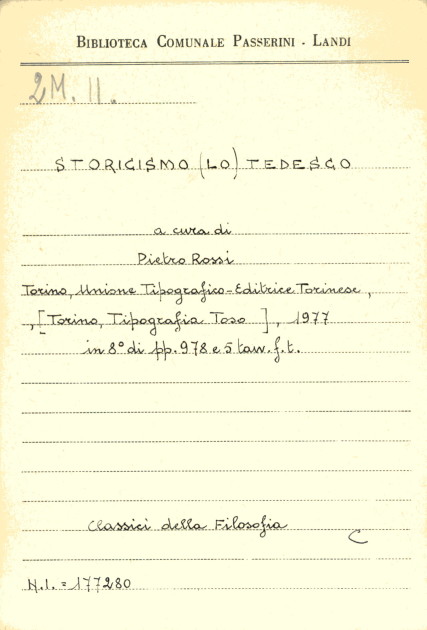 BIBLIOTECA COMUNALE PASSERINI - LANDI
2M. 11.
STORICISMO (LO) TEDESCO
a cura di
Pietro Rossi
Torino, Unione Tipografico-Editrice Torinese,
, [Torino, Tipografia Toso ], 1977
in 8° di pp. 978 e 5 tavv. f. t.
Classici della Filosofia
C
N.I. = 177280